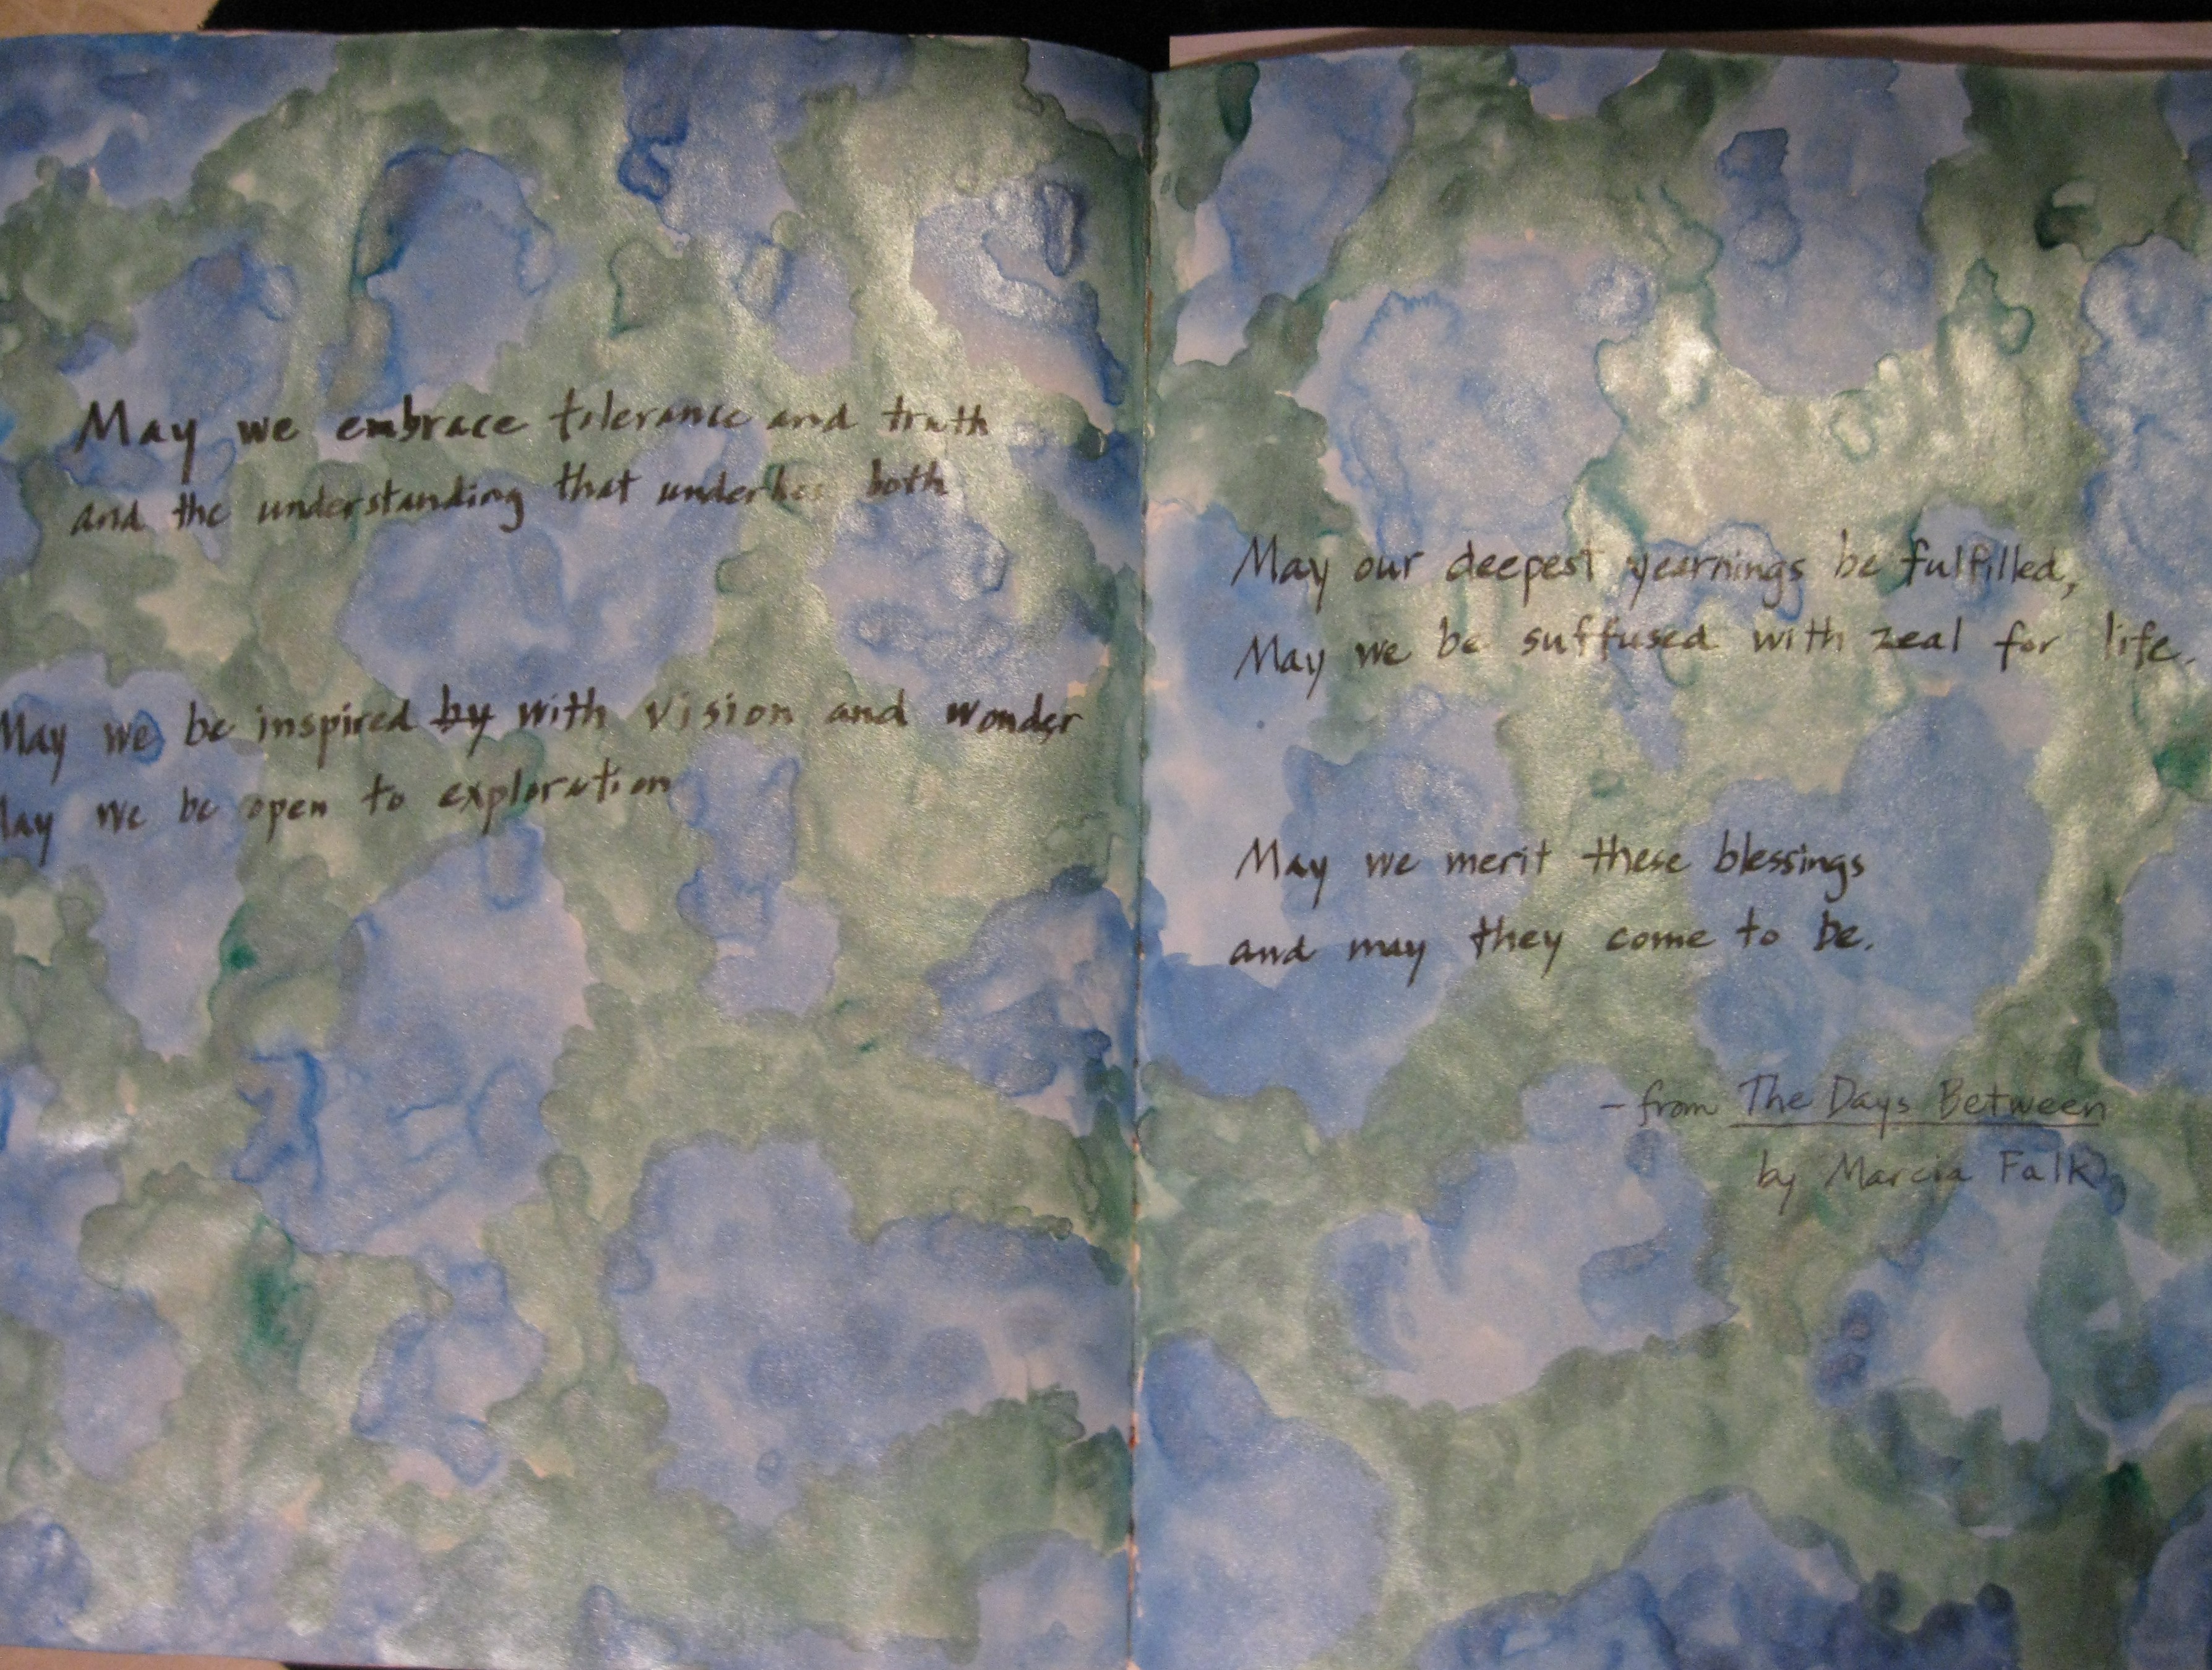 May we embrace tolerance and truth
and the understanding that underlies both
May we be inspired by with vision and wonder
May we be open to exploration
May our deepest yearnings be fulfilled,
May we be suffused with zeal for life.
May we merit these blessings
and may they come to be.
- from The Days Between
by Marcia Falk